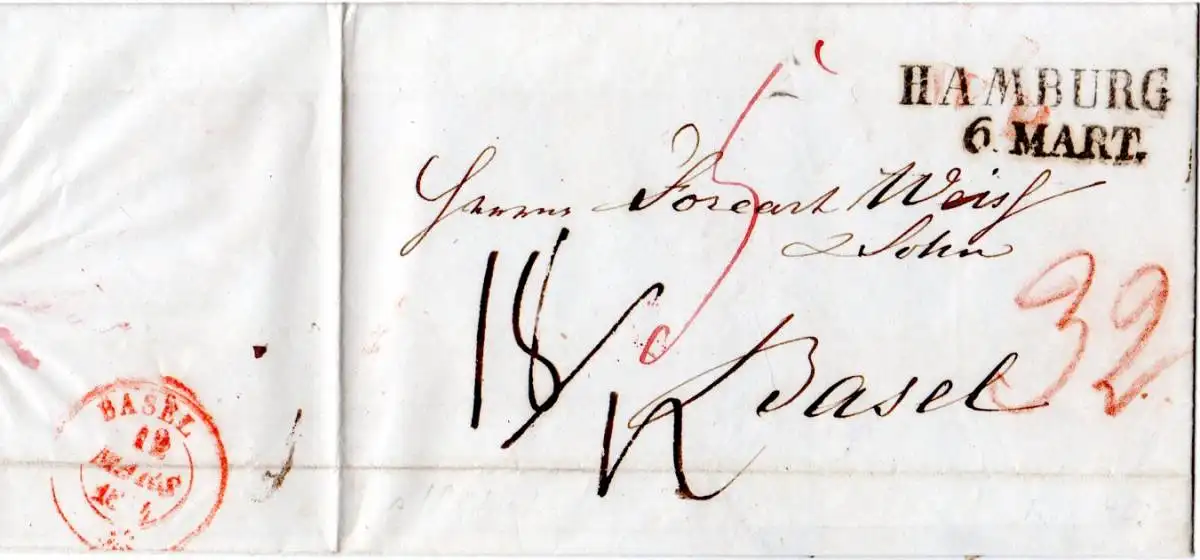 HAMBURG
6. MART.
Herrn Forcart Weiss
& Sohn
Basel
32
18
BASEL
12
MARS